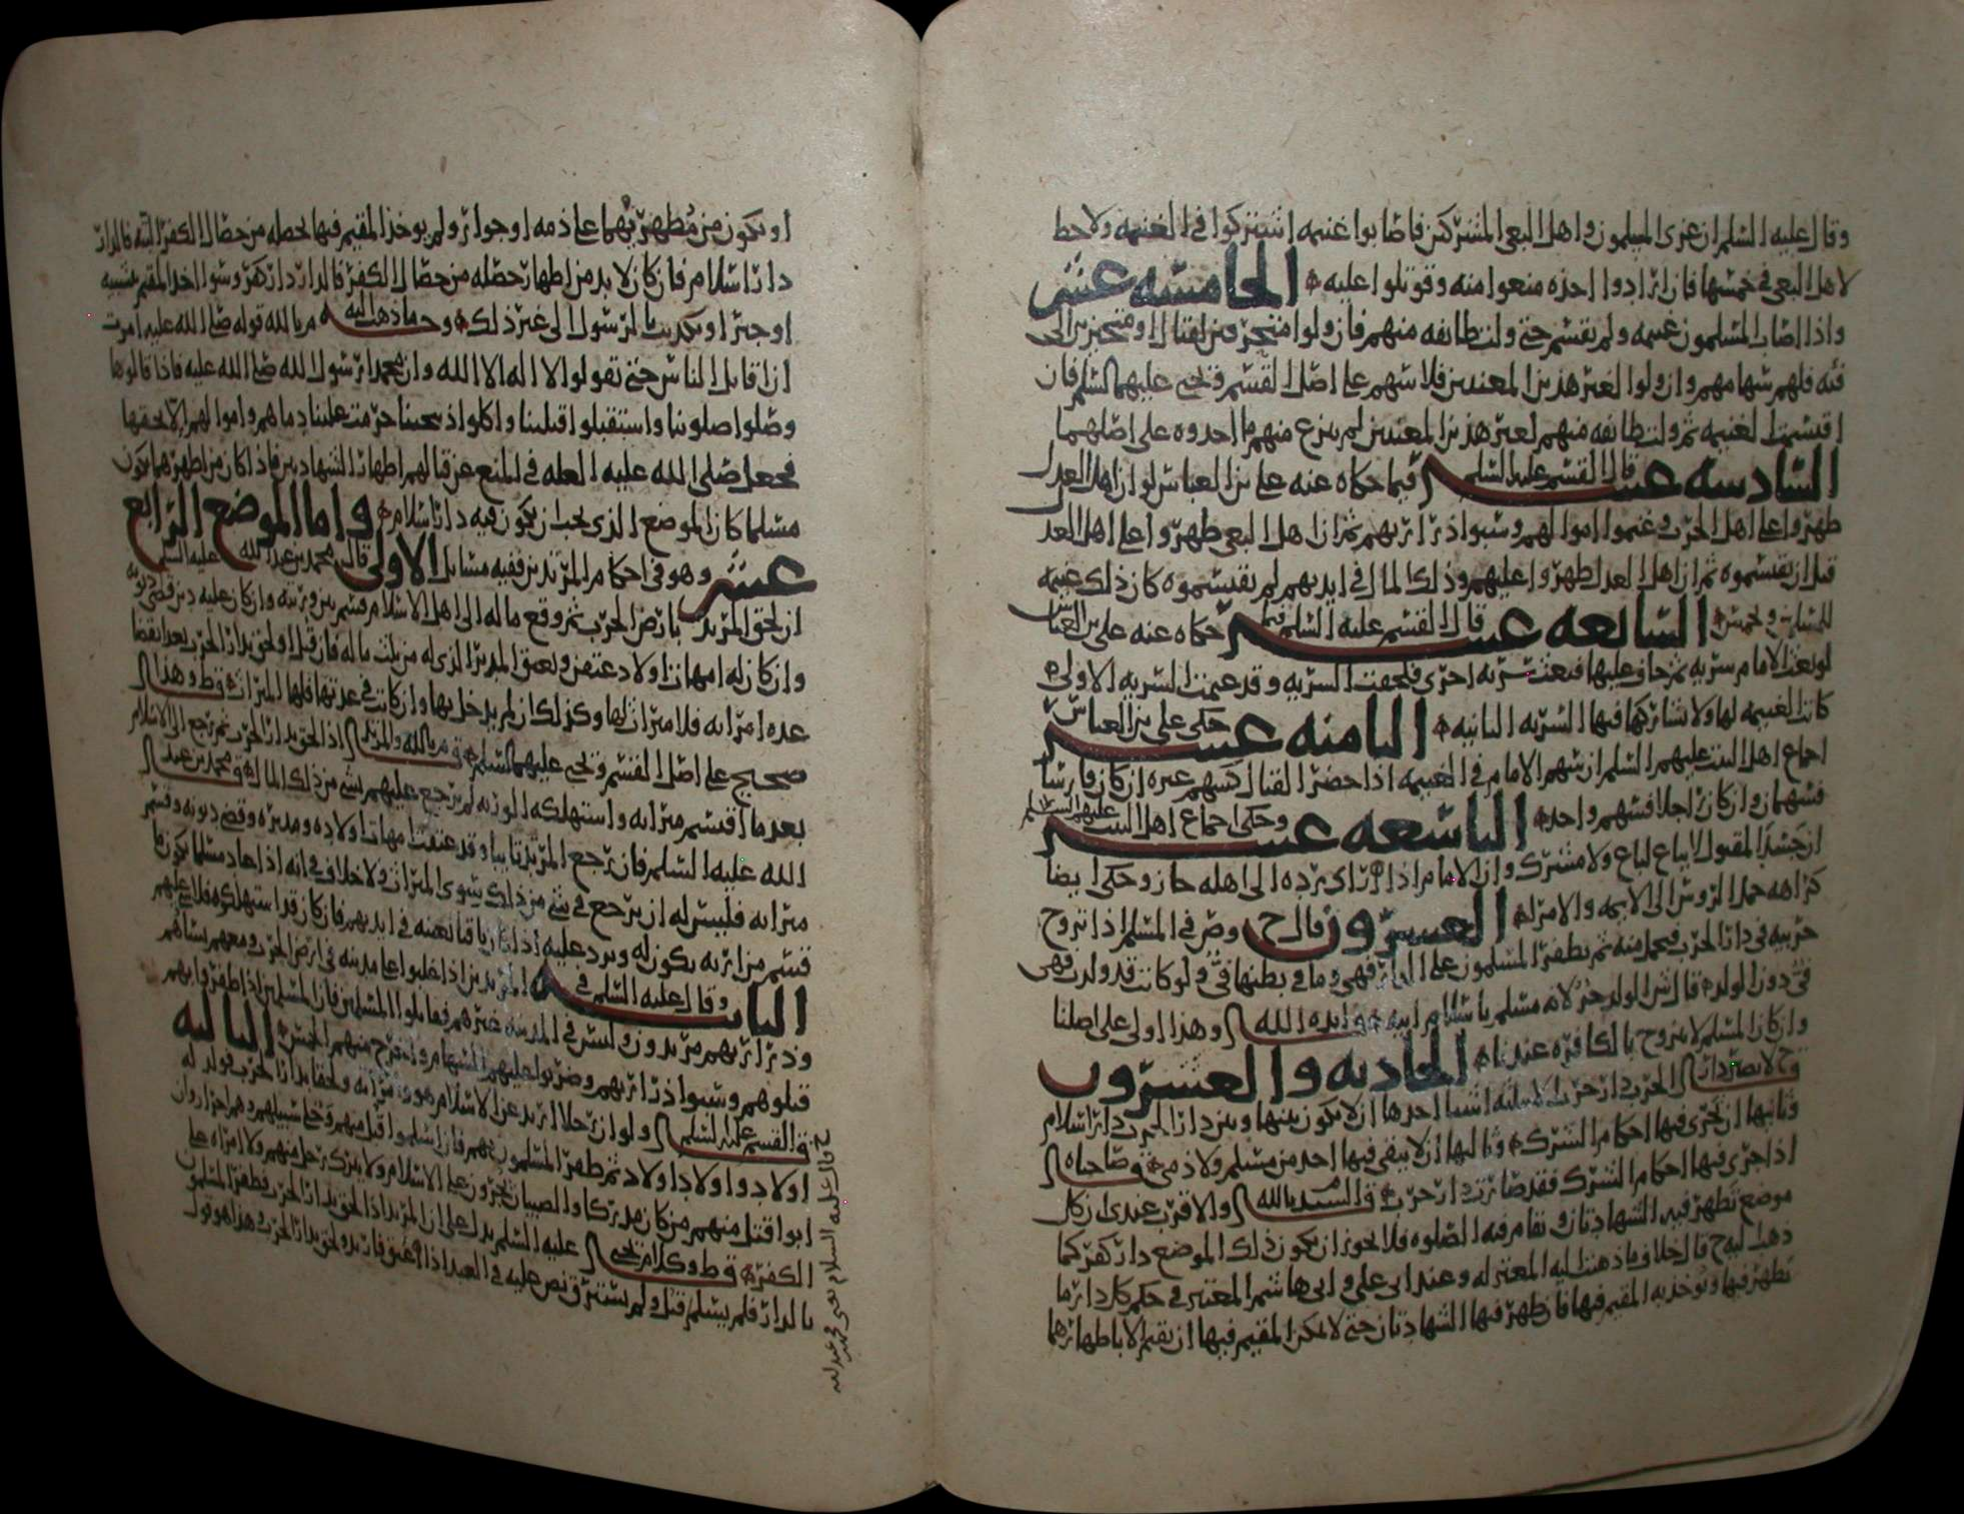 وقال عليه السلم ان غزى المسلمون واهل البغى المشركين فاصابوا غنيمه اشتركوا فى الغنيمه ولاحظ
لاهل البغى فى خمسها فان ارادوا اخذه منعوا منه وقوتلوا عليه الخامسه عشر
واذا اصاب المسلمون غنيمه ولم تقسم حتى ولت طائفه منهم فان ولوا متحرفين لقتال او متحيزين الى
فئه فلهم سهامهم وان ولوا لغير هذين المعنيين فلا سهم على اصل القسم ويحيى عليهما السلم فان
اقتسمت الغنيمه ثم ولت طائفه منهم لغير هذين المعنيين لم ينزع منهم ما اخذوه على اصلهما
السادسه عشر قال القسم عليه السلم فيما حكاه عنه على بن العباس لو ان اهل العدل
ظهروا على اهل الحرب وغنموا اموالهم وسبوا ذراريهم ثم ان اهل البغى ظهروا على اهل العدل
قبل ان يقتسموه ثم ان اهل العدل ظهروا عليهم وذلك المال فى ايديهم لم يقتسموه كان ذلك غنيمه
للمسلمين ويخمس السابعه عشر قال القسم عليه السلم فيما حكاه عنه على بن العباس
لو بعث الامام سريه ثم خاف عليها فبعث سريه اخرى فلحقت السريه وقد غنمت السريه الاولى
كانت الغنيمه لها ولا تشاركها فيها السريه الثانيه الثامنه عشر حكى على بن العباس
اجماع اهل البيت عليهم السلم ان سهم الامام فى الغنيمه اذا حضر القتال كسهم غيره ان كان فارسا
فسهمان وان كان راجلا فسهم واحد التاسعه عشر وحكى اجماع اهل البيت عليهم السلم
ان جسد المقتول لا يباع لباغ ولا مشرك وان الامام اذا راى يرده الى اهله جاز وحكى ايضا
كراهه حمل الروس الى الايمه والامراء العشرون قال ح وص فى المسلم اذا تزوج
حربيه فى دار الحرب فحملت منه ثم يظفر المسلمون على الدار فهى وما فى بطنها فى ولو كانت قد ولدت فهى
فى دون الولد قال ش الولد حر لانه مسلم باسلام ابيه ايده الله وهذا اولى على اصلنا
وان كان المسلم لا يتزوج بالكافره عندنا الحاديه والعشرون
ح لا تصير دار الحرب دار حرب الا بثلثه اشيا احدها ان لا يكون بينها وبين دار الحرب دار اسلام
وثانيها ان تجرى فيها احكام الشرك وثالثها ان لا يبقى فيها احد من مسلم ولا ذمى وصاحباه
اذا جرى فيها احكام الشرك فقد صارت دار حرب السيد بالله والاقرب عندى ان كل
موضع تظهر فيه الشهادتان وتقام فيه الصلوه فلا يجوز ان يكون ذلك الموضع دار كفر كما
ذهب اليه ح قال خلاف ما ذهبت اليه المعتزله وعند ابى على وابى هاشم المعتبر فى حكم كل دار ما
تظهر فيها ويوخذ به المقيم فيها فان ظهر فيها الشهادتان حتى لا يمكن المقيم فيها ان يقيم الا باظهارهما
او يكون من مظهر لهما على ذمه او جوار ولم يوخذ المقيم فيها بخصله من خصال الكفر البته فالدار
دار اسلام فان كان لا بد من اظهار خصله من خصال الكفر فالدار دار كفر وسوا اخذ المقيم بتشبيه
او جبر او تكذيب الرسول الى غير ذلك وحجه ما ذهب اليه م بالله قوله صلى الله عليه امرت
ان اقاتل الناس حتى يقولوا لا اله الا الله وان محمدا رسول الله صلى الله عليه فاذا قالوها
وصلوا صلوتنا واستقبلوا قبلتنا واكلوا ذبيحتنا حرمت علينا دماهم واموالهم الا بحقها
فجعل صلى الله عليه العله فى المنع عن قتالهم اظهار الشهادتين فاذا كان من اظهرهما يكون
مسلما كان الموضع الذى يجب ان يكون فيه دار اسلام واما الموضع الرابع
عشر وهو فى احكام المرتدين ففيه مسايل الاولى قال محمد بن عبدالله عليه السلم
ان لحق المرتد بارض الحرب ثم وقع ماله الى اهل الاسلام قسم بين ورثته وان كان عليه دين قضى ديونه
وان كان له امهات اولاد عتقن ويعتق المدبر الذى له من ثلث ماله فان قتل او لحق بدار الحرب بعد انقضا
عده امراته فلا ميراث لها وكذلك ان لم يدخل بها وان كانت فى عدتها فلها الميراث ط وهذا
صحيح على اصل القسم ويحيى عليهما السلم م بالله والمرتد اذا لحق بدار الحرب ثم رجع الى الاسلام
بعد ما اقتسم ميراثه واستهلكه الورثه لم يرجع عليهم بشى من ذلك المال محمد بن عبد
الله عليه السلم فان رجع المرتد تايبا وقد عتقت امهات اولاده ومدبره وقضى ديونه وقسم
ميراثه فليس له ان يرجع فى شى من ذلك سوى الميراث ولا خلاف فى انه اذا عاد مسلما يكون ما
قسم من ارثه يكون له ويرد عليه اذا كان باقيا بعينه فى ايديهم فان كان قد استهلكوه فلا شى عليهم
الثانيه وقال عليه السلم فى المرتدين اذا غلبوا على مدينه فى ارض الحرب ومعهم نساهم
وذراريهم مرتدون وليس فى المدينه غيرهم فقاتلوا المسلمين فان المسلمين اذا ظفروا بهم
قتلوهم وسبوا ذراريهم وضربوا عليهم السهام واخرج منهم الخمس الثالثه
القسم عليه السلم ولو ان رجلا ارتد عن الاسلام هو وامراته ولحقا بدار الحرب فولد له
اولاد ولاولاد اولاد ثم ظهر المسلمون بهم فان اسلموا قبل منهم وخلى سبيلهم وهم احرار وان
ابوا قتل منهم من كان مدركا والصبيان يجبرون على الاسلام ولا يترك رجل منهم ولا امراه على
الكفر ط وكلام يحيى عليه السلم يدل على ان المرتد اذا لحق بدار الحرب فظفر المسلمون
بالدار فلم يسلم قتل ولم يسترق نص عليه فى العبد اذا عتق فارتد ولحق بدار الحرب وهذا هو قول
قال عليه السلام يعنى محمد بن عبد الله